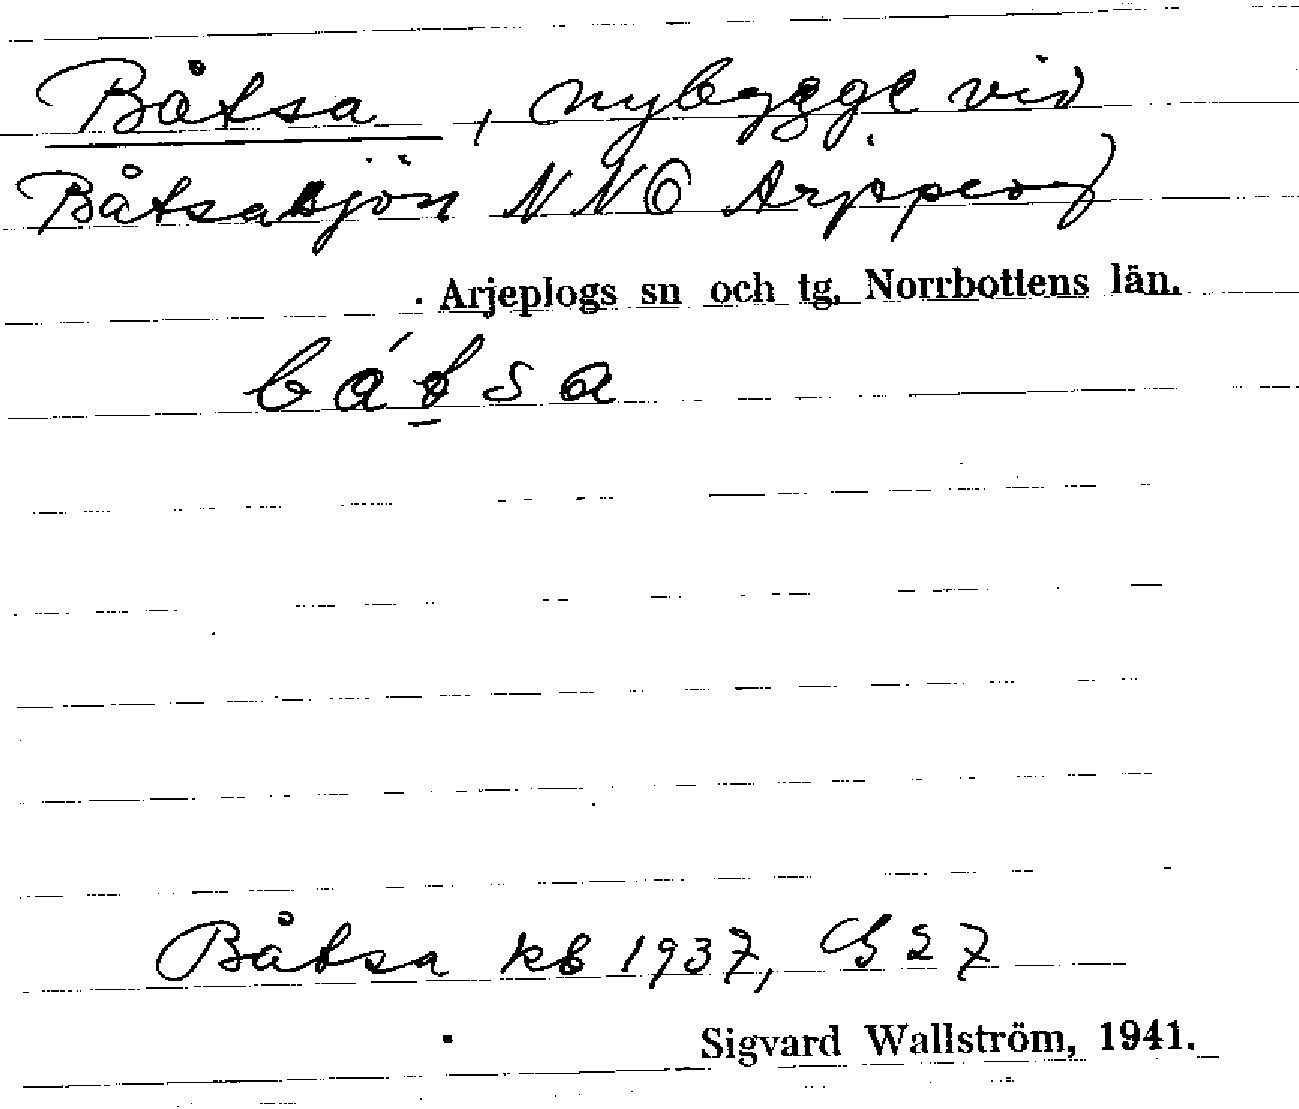 Båtsa, nybygge vid
Båtsasjön NNO Arjeplog
Arjeplogs sn och tg. Norrbottens län.
bátsa
Båtsa kb 1937, S 27
Sigvard Wallström, 1941.